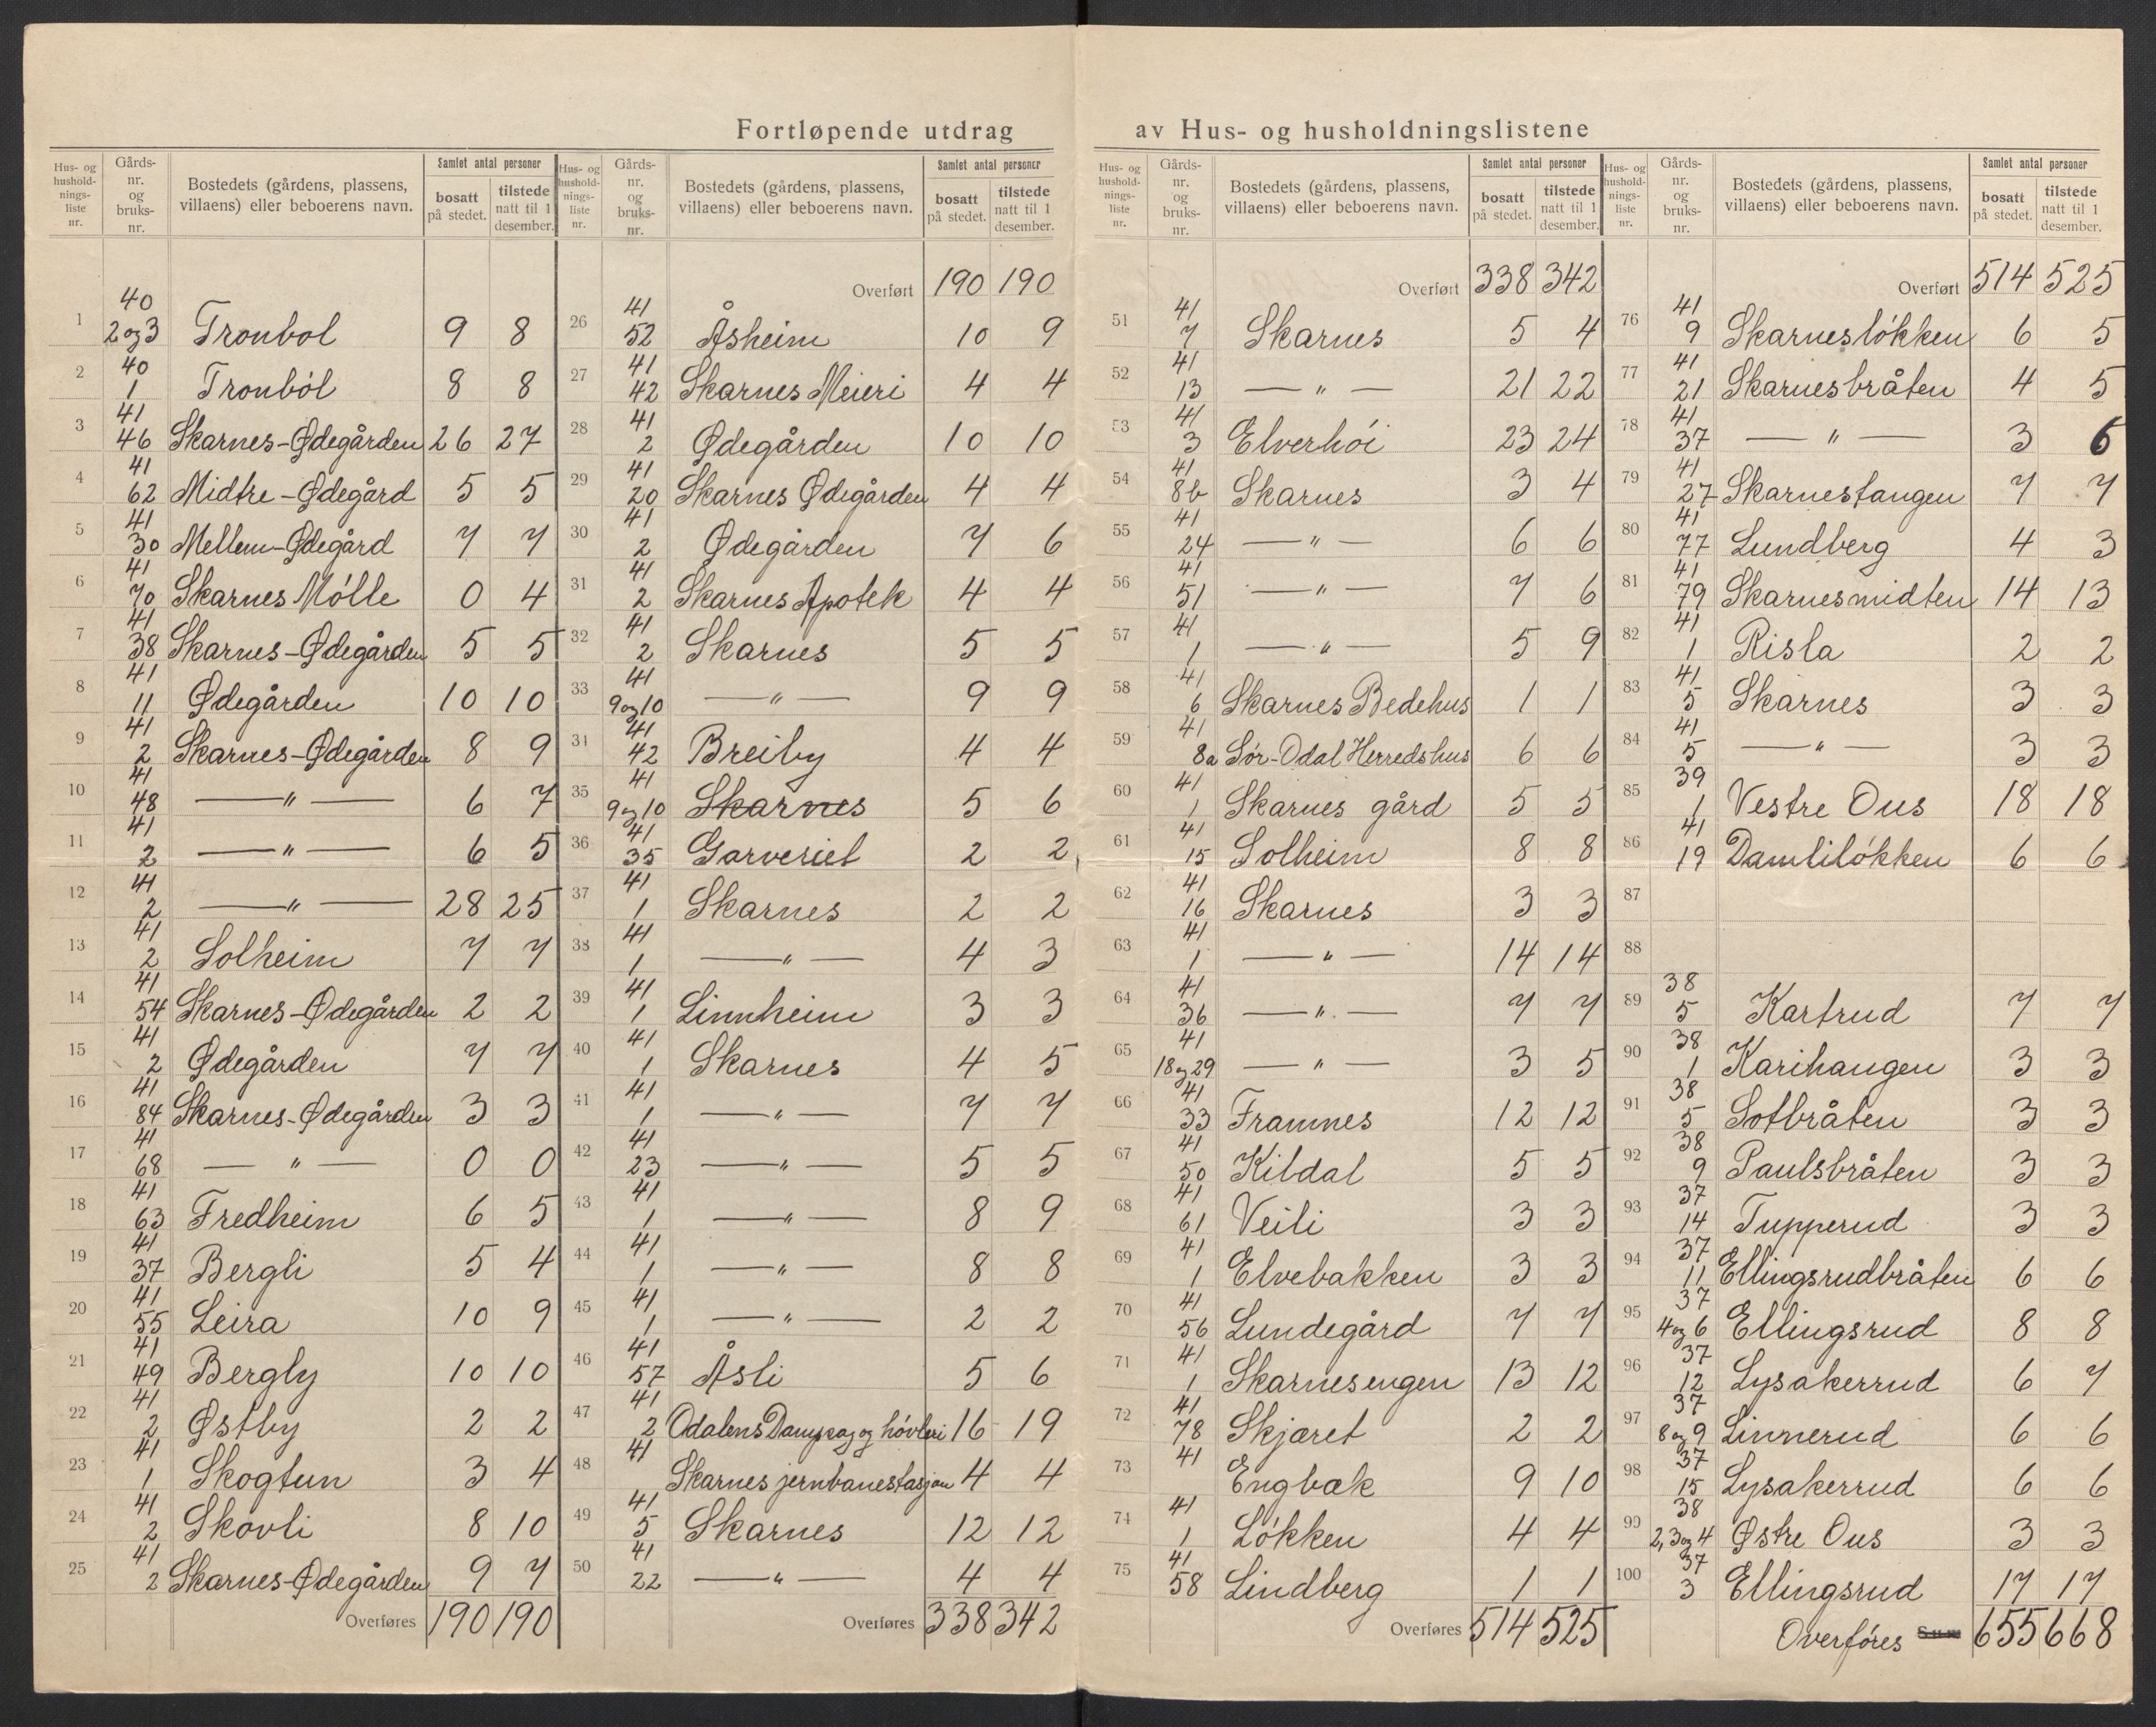 Fortløpende utdrag av Hus- og husholdningslistene
Hus- og husholdnings-liste nr. | Gårds-nr. og bruks-nr. | Bostedets (gårdens, plassens, villaens) eller beboerens navn. | Samlet antal personer: bosatt på stedet. | tilstede natt til 1 desember.
1 | 40 2 og 3 | Tronbol | 9 | 8
2 | 40 1 | Tronból | 8 | 8
3 | 41 46 | Skarnes-Ødegården | 26 | 27
4 | 41 62 | Midtre-Ødegård | 5 | 5
5 | 41 30 | Mellem-Ødegård | 7 | 7
6 | 41 70 | Skarnes Mólle | 0 | 4
7 | 41 38 | Skarnes-Ødegården | 5 | 5
8 | 41 11 | Ødegården | 10 | 10
9 | 41 2 | Skarnes-Ødegården | 8 | 9
10 | 41 48 | — " — | 6 | 7
11 | 41 2 | — " — | 6 | 5
12 | 41 2 | — " — | 28 | 25
13 | 41 2 | Solheim | 7 | 7
14 | 41 54 | Skarnes-Ødegården | 2 | 2
15 | 41 2 | Ødegården | 7 | 7
16 | 41 84 | Skarnes-Ødegården | 3 | 3
17 | 41 68 | — " — | 0 | 0
18 | 41 63 | Fredheim | 6 | 5
19 | 41 37 | Bergli | 5 | 4
20 | 41 55 | Leira | 10 | 9
21 | 41 49 | Bergly | 10 | 10
22 | 41 2 | Østby | 2 | 2
23 | 41 1 | Skogtun | 3 | 4
24 | 41 2 | Skovli | 8 | 10
25 | 41 2 | Skarnes-Ødegården | 9 | 7
Overføres | 190 | 190
Hus- og husholdnings-liste nr. | Gårds-nr. og bruks-nr. | Bostedets (gårdens, plassens, villaens) eller beboerens navn. | Samlet antal personer: bosatt på stedet. | tilstede natt til 1 desember.
Overført | 190 | 190
26 | 41 52 | Åsheim | 10 | 9
27 | 41 42 | Skarnes Meieri | 4 | 4
28 | 41 2 | Ødegården | 10 | 10
29 | 41 20 | Skarnes Ødegården | 4 | 4
30 | 41 2 | Ødegården | 7 | 6
31 | 41 2 | Skarnes Apotek | 4 | 4
32 | 41 2 | Skarnes | 5 | 5
33 | 41 9 og 10 | — " — | 9 | 9
34 | 41 42 | Breiby | 4 | 4
35 | 41 9 og 10 | Skarnes | 5 | 6
36 | 41 35 | Garveriet | 2 | 2
37 | 41 1 | Skarnes | 2 | 2
38 | 41 1 | — " — | 4 | 3
39 | 41 1 | Linnheim | 3 | 3
40 | 41 1 | Skarnes | 4 | 5
41 | 41 1 | — " — | 7 | 7
42 | 41 23 | — " — | 5 | 5
43 | 41 1 | — " — | 8 | 9
44 | 41 1 | — " — | 8 | 8
45 | 41 1 | — " — | 2 | 2
46 | 41 57 | Åsli | 5 | 6
47 | 41 2 | Odalens Dampsag og hóvleri | 16 | 19
48 | 41 | Skarnes jernbanestasjon | 4 | 4
49 | 41 5 | Skarnes | 12 | 12
50 | 41 22 | — " — | 4 | 4
Overføres | 338 | 342
Hus- og husholdnings-liste nr. | Gårds-nr. og bruks-nr. | Bostedets (gårdens, plassens, villaens) eller beboerens navn. | Samlet antal personer: bosatt på stedet. | tilstede natt til 1 desember.
Overført | 338 | 342
51 | 41 7 | Skarnes | 5 | 4
52 | 41 13 | — " — | 21 | 22
53 | 41 3 | Elverhói | 23 | 24
54 | 41 8b | Skarnes | 3 | 4
55 | 41 24 | — " — | 6 | 6
56 | 41 51 | — " — | 7 | 6
57 | 41 1 | — " — | 5 | 9
58 | 41 6 | Skarnes Bedehus | 1 | 1
59 | 41 8a | Sór-Odal Herredshus | 6 | 6
60 | 41 1 | Skarnes gård | 5 | 5
61 | 41 15 | Solheim | 8 | 8
62 | 41 16 | Skarnes | 3 | 3
63 | 41 1 | — " — | 14 | 14
64 | 41 36 | — " — | 7 | 7
65 | 41 18 og 29 | — " — | 3 | 5
66 | 41 33 | Framnes | 12 | 12
67 | 41 50 | Kildal | 5 | 5
68 | 41 61 | Veili | 3 | 3
69 | 41 1 | Elvebakken | 3 | 3
70 | 41 56 | Lundegård | 7 | 7
71 | 41 1 | Skarnesengen | 13 | 12
72 | 41 78 | Skjæret | 2 | 2
73 | 41 | Engbæk | 9 | 10
74 | 41 1 | Lókken | 4 | 4
75 | 41 58 | Lindberg | 1 | 1
Overføres | 514 | 525
Hus- og husholdnings-liste nr. | Gårds-nr. og bruks-nr. | Bostedets (gårdens, plassens, villaens) eller beboerens navn. | Samlet antal personer: bosatt på stedet. | tilstede natt til 1 desember.
Overført | 514 | 525
76 | 41 9 | Skarneslókken | 6 | 5
77 | 41 21 | Skarnesbråten | 4 | 5
78 | 41 37 | — " — | 3 | 6
79 | 41 27 | Skarnestangen | 7 | 7
80 | 41 77 | Lundberg | 4 | 3
81 | 41 79 | Skarnesmidten | 14 | 13
82 | 41 1 | Risla | 2 | 2
83 | 41 5 | Skarnes | 3 | 3
84 | 41 5 | — " — | 3 | 3
85 | 39 1 | Vestre Ous | 18 | 18
86 | 41 19 | Damlilókken | 6 | 6
87
88
89 | 38 5 | Kartrud | 7 | 7
90 | 38 1 | Karihaugen | 3 | 3
91 | 38 5 | Sotbråten | 3 | 3
92 | 38 9 | Paulsbråten | 3 | 3
93 | 37 14 | Tupperud | 3 | 3
94 | 37 11 | Ellingsrudbråten | 6 | 6
95 | 37 4 og 6 | Ellingsrud | 8 | 8
96 | 37 12 | Lysakerrud | 6 | 7
97 | 37 8 og 9 | Linnerud | 6 | 6
98 | 37 15 | Lysakerrud | 6 | 6
99 | 38 2, 3 og 4 | Østre Ous | 3 | 3
100 | 37 3 | Ellingsrud | 17 | 17
Overfóres Sum | 655 | 668